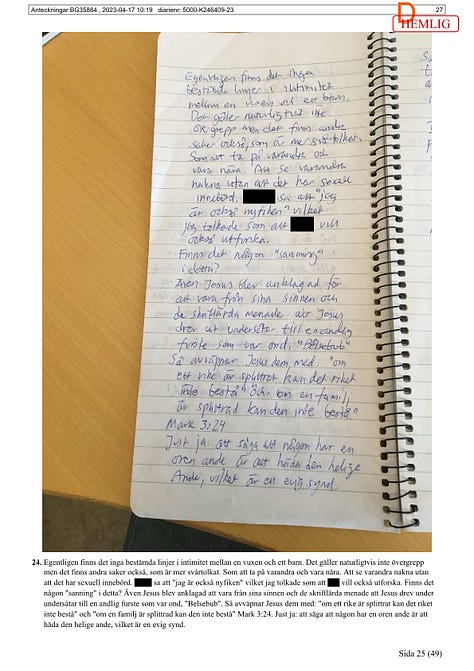 Anteckningar BG35884 , 2023-04-17 10:19 diarienr: 5000-K246409-23
27
D
HEMLIG
Egentligen finns det inga
bestämda linjer i intimitet
mellan en vuxen och ett barn.
Det gäller naturligtvis inte
övergrepp men det finns andra
saker också, som är mer svårtolkat.
Som att ta på varandra och
vara nära. Att se varandra
nakna utan att det har sexuell
innebörd. sa att "jag
är också nyfiken" vilket
jag tolkade som att vill
också utforska.
Finns det någon "sanning"
i detta?
Även Jesus blev anklagad för
att vara från sina sinnen och
de skriftlärda menade att Jesus
drev ut undersåtar till en andlig
furste som var ond, "Belsebub"
Så avväpnar Jesus dem med: "om
ett rike är splittrat kan det riket
inte bestå" och "om en familj
är splittrad kan den inte bestå"
Mark 3:24
Just ja: att säga att någon har en
oren ande är att häda den helige
Ande, vilket är en evig synd.
24. Egentligen finns det inga bestämda linjer i intimitet mellan en vuxen och ett barn. Det gäller naturligtvis inte övergrepp
men det finns andra saker också, som är mer svårtolkat. Som att ta på varandra och vara nära. Att se varandra nakna utan
att det har sexuell innebörd. sa att "jag är också nyfiken" vilket jag tolkade som att vill också utforska. Finns det
någon "sanning" i detta? Även Jesus blev anklagad för att vara från sina sinnen och de skriftlärda menade att Jesus drev under
undersåtar till en andlig furste som var ond, "Belsebub". Så avväpnar Jesus dem med: "om ett rike är splittrat kan det riket
inte bestå" och "om en familj är splittrad kan den inte bestå" Mark 3:24. Just ja: att säga att någon har en oren ande är att
häda den helige ande, vilket är en evig synd.
Sida 25 (49)